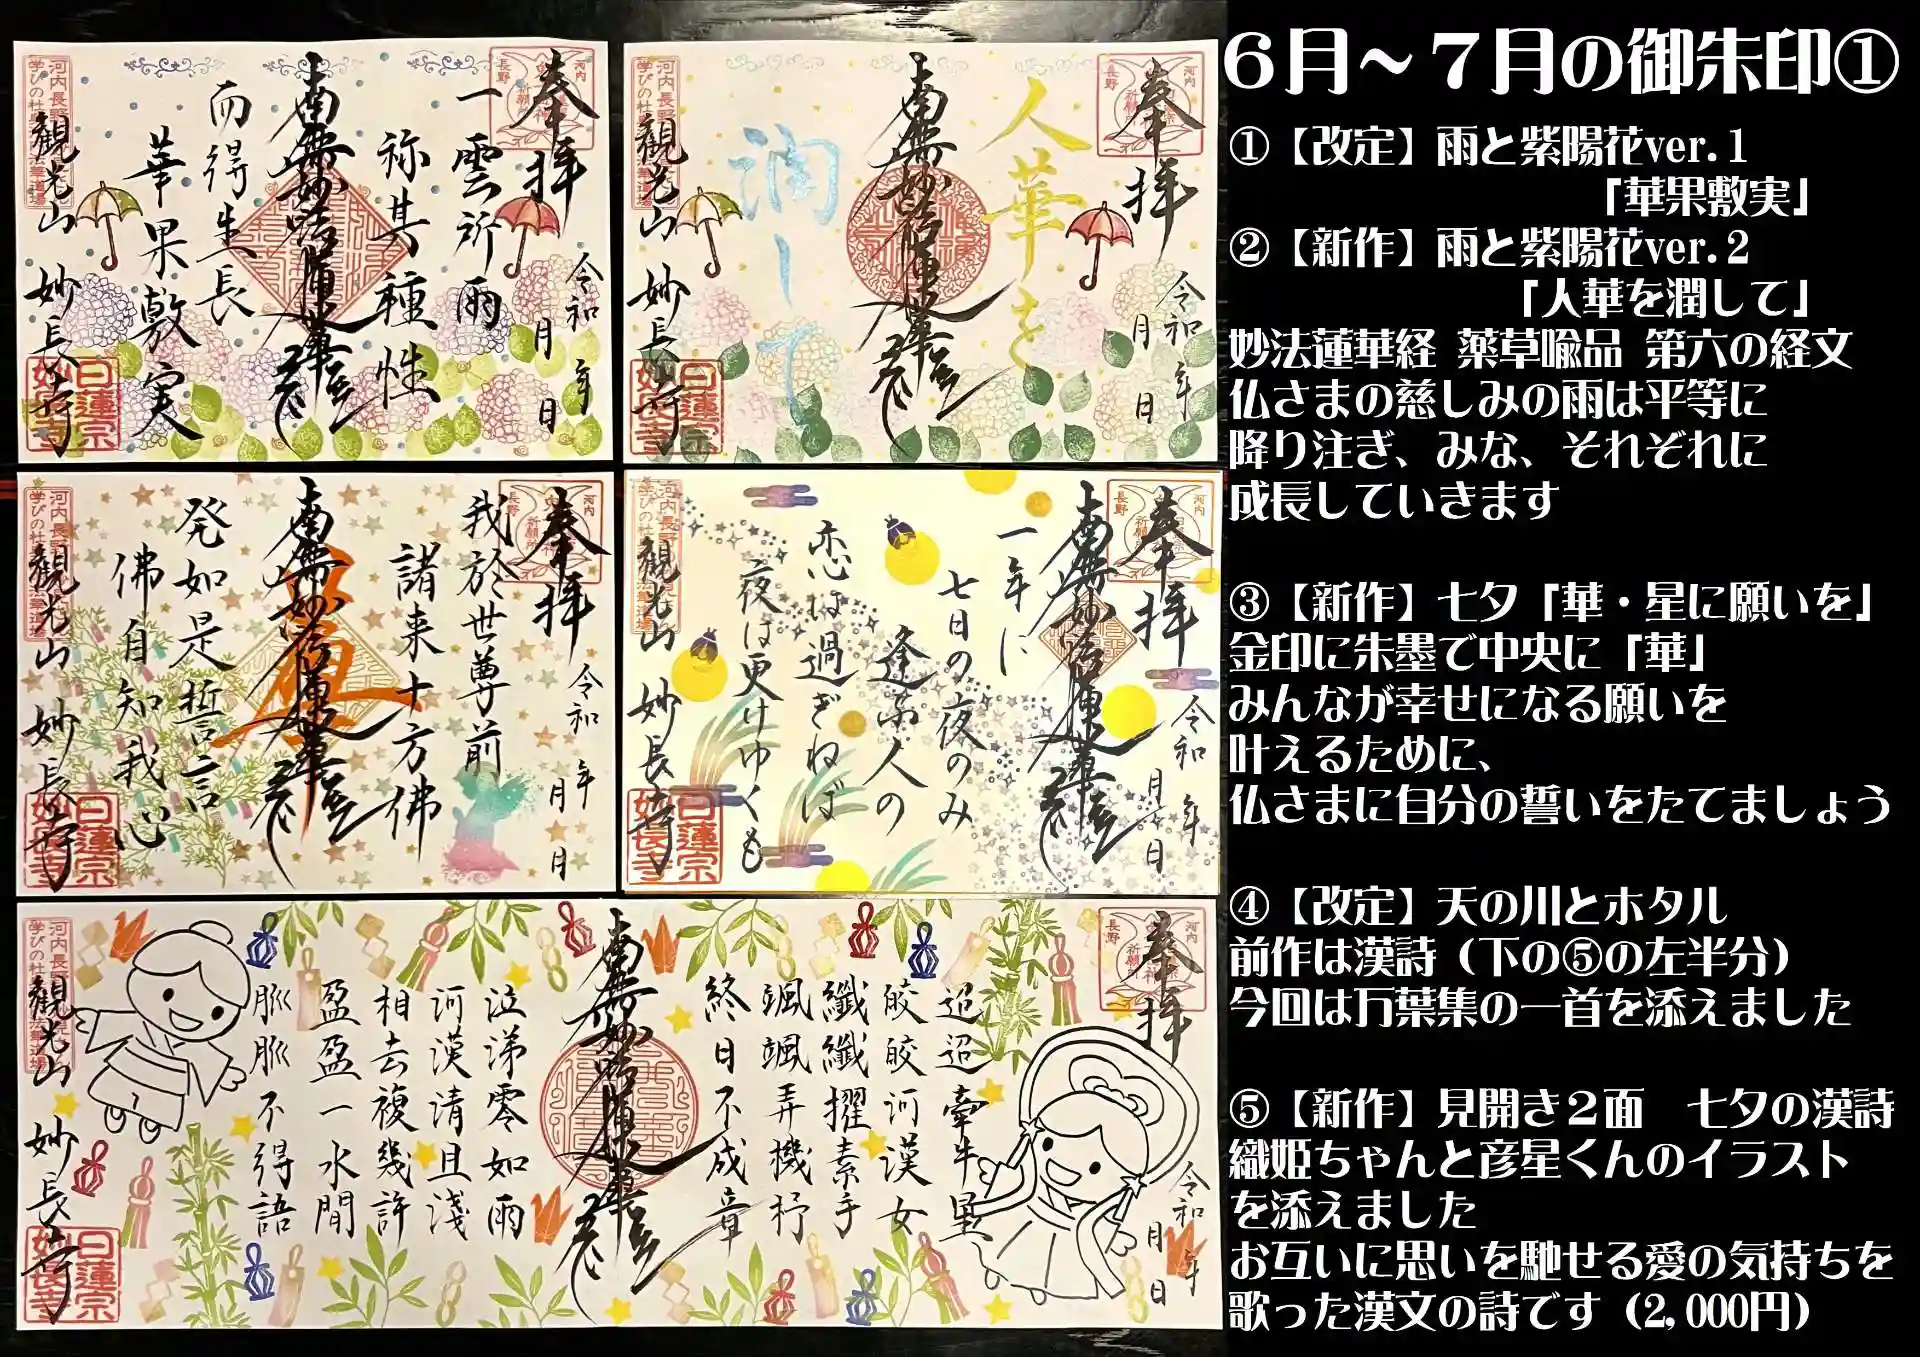 6月~7月の御朱印①
①【改定】雨と紫陽花ver.1
「華果敷実」
②【新作】雨と紫陽花ver.2
「人華を潤して」
妙法蓮華経 薬草喩品 第六の経文
仏さまの慈しみの雨は平等に
降り注ぎ、みな、それぞれに
成長していきます
③【新作】七夕「華・星に願いを」
金印に朱墨で中央に「華」
みんなが幸せになる願いを
叶えるために、
仏さまに自分の誓いをたてましょう
④【改定】天の川とホタル
前作は漢詩(下の⑤の左半分)
今回は万葉集の一首を添えました
⑤【新作】見開き2面 七夕の漢詩
織姫ちゃんと彦星くんのイラスト
を添えました
お互いに思いを馳せる愛の気持ちを
歌った漢文の詩です(2,000円)
奉拝
令和 年 月 日
一雲所雨
称其種性
南無妙法蓮華経
而得生長
華果敷実
観光山 妙長寺
日蓮宗
妙長寺
奉拝
令和 年 月 日
人華を
南無妙法蓮華経
潤して
観光山 妙長寺
日蓮宗
妙長寺
奉拝
令和 年 月 日
我於世尊前
諸来十方佛
南無妙法蓮華経
発如是誓言
佛自知我心
観光山 妙長寺
日蓮宗
妙長寺
奉拝
令和 年 月 日
南無妙法蓮華経
一年に
七日の夜のみ
逢ふ人の
恋は過ぎねば
夜は更けゆくも
観光山 妙長寺
日蓮宗
妙長寺
奉拝
令和 年 月 日
迢迢牽牛星
皎皎河漢女
纖纖擢素手
颯颯弄機杼
終日不成章
南無妙法蓮華経
泣涕零如雨
河漢清且淺
相去複幾許
盈盈一水間
脈脈不得語
観光山 妙長寺
日蓮宗
妙長寺